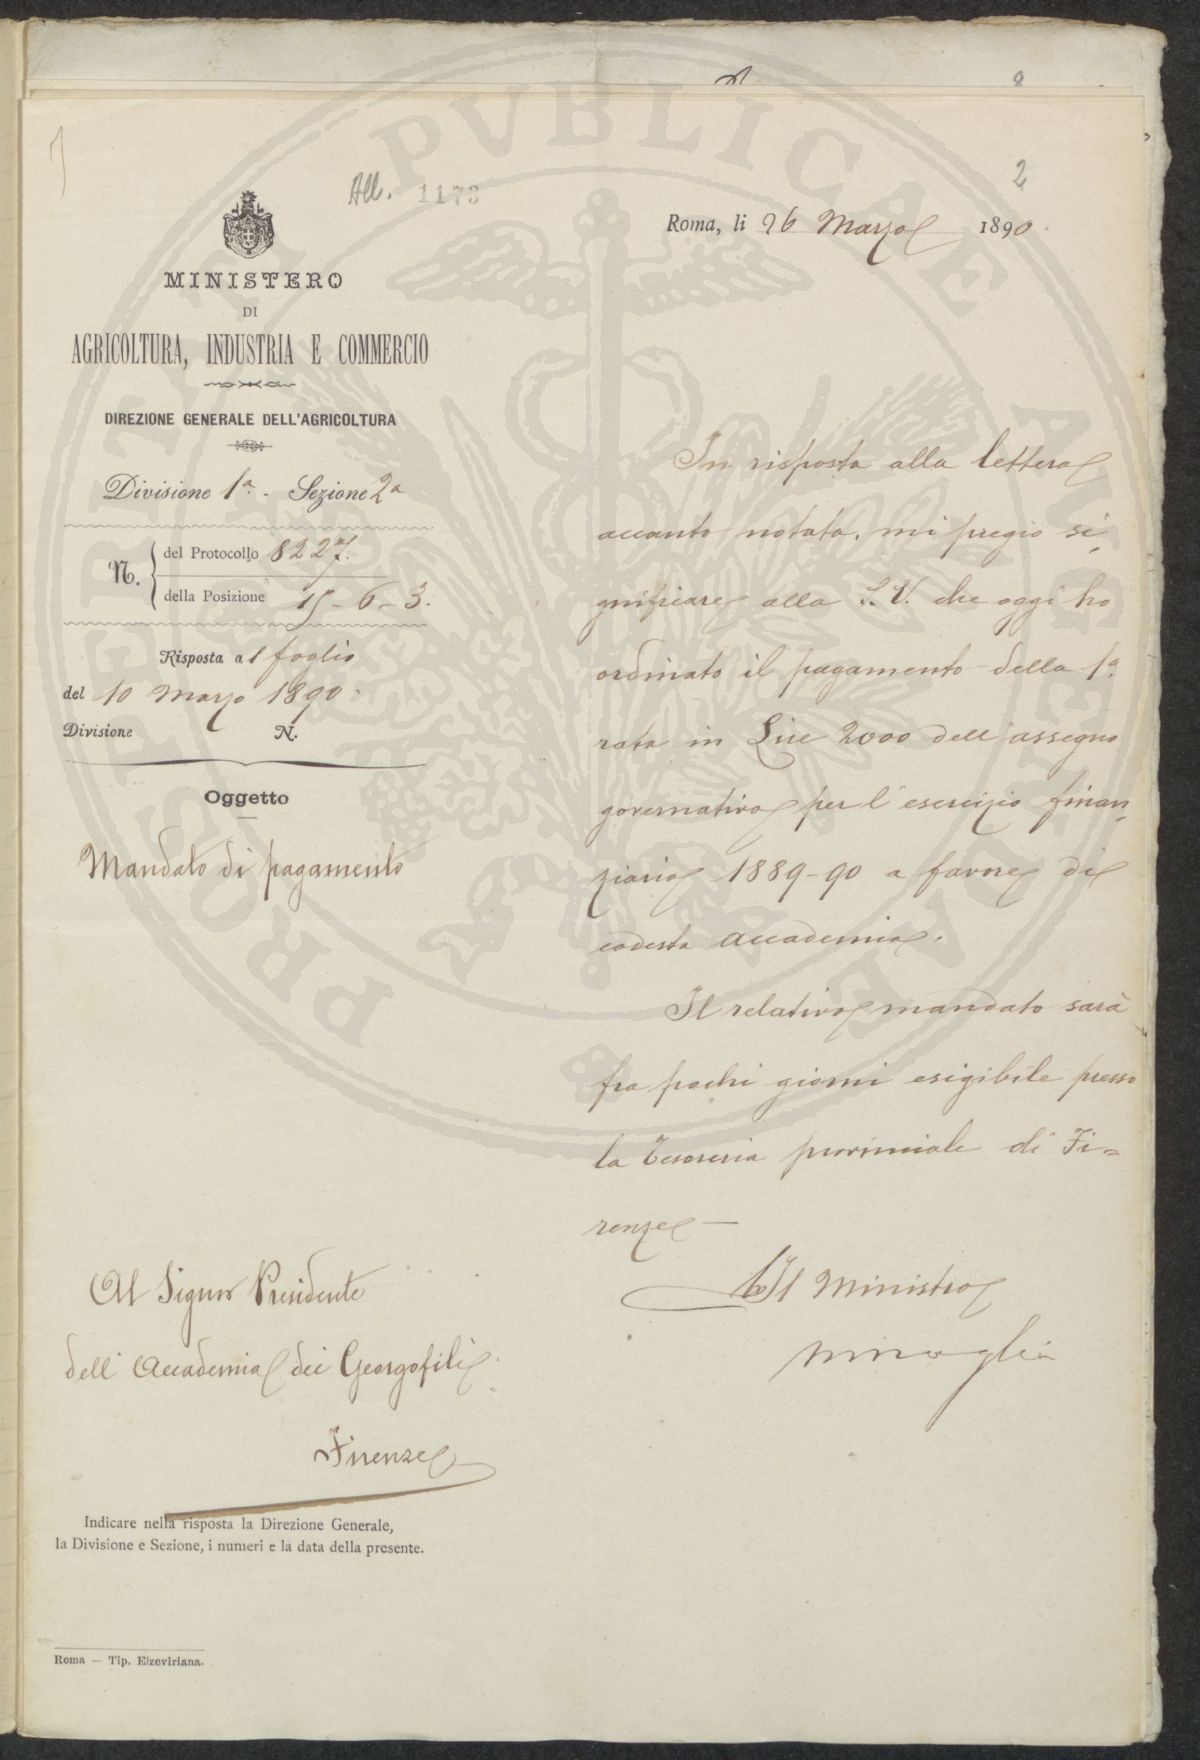 All. 1173
2
Roma, li 26 Marzo 1890.
MINISTERO
DI
AGRICOLTURA, INDUSTRIA E COMMERCIO
DIREZIONE GENERALE DELL'AGRICOLTURA
Divisione 1a. Sezione 2a
N. del Protocollo 8227.
della Posizione 15-6-3.
Risposta a 1 foglio
del 10 Marzo 1890.
Divisione N.
Oggetto
Mandato di pagamento
Al Signor Presidente
dell'Accademia dei Georgofili
Firenze
Indicare nella risposta la Direzione Generale,
la Divisione e Sezione, i numeri e la data della presente.
Roma — Tip. Elzeviriana.
In risposta alla lettera
accanto notata, mi pregio si-
gnificare alla S.V. che oggi ho
ordinato il pagamento della 1a.
rata in Lire 2000 dell'assegno
governativo per l'esercizio finan-
ziario 1889-90 a favore di
codesta Accademia.
Il relativo mandato sarà
fra pochi giorni esigibile presso
la Tesoreria provinciale di Fi=
renze —
Il Ministro
PROSPERITATI PVBLICAE AVGENDAE